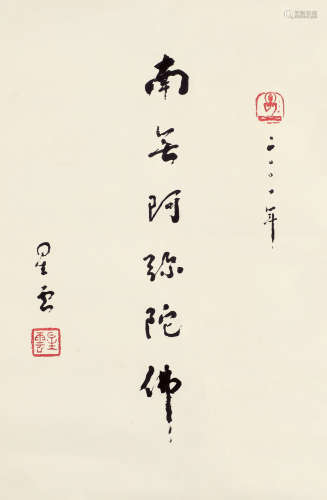 二〇〇〇年
南无阿弥陀佛
星云
星雲